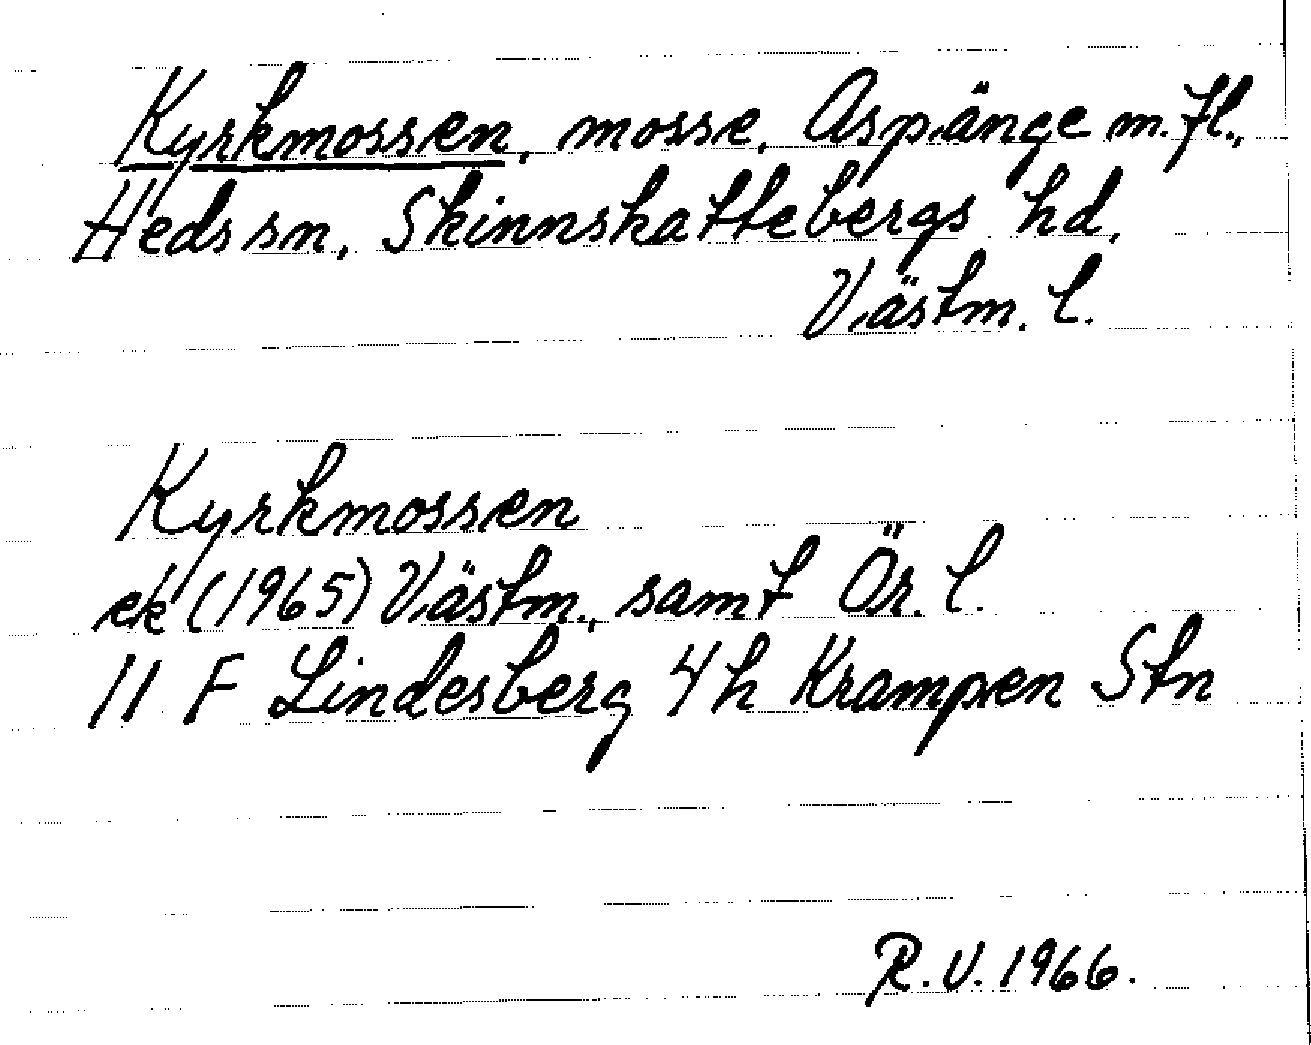 Kyrkmossen, mosse, Aspänge m.fl.,
Heds sn, Skinnskattebergs hd,
Västm. l.
Kyrkmossen
ek (1965) Västm., samt Ör. l.
11 F Lindesberg 4h Krampen Stn
R.V. 1966.